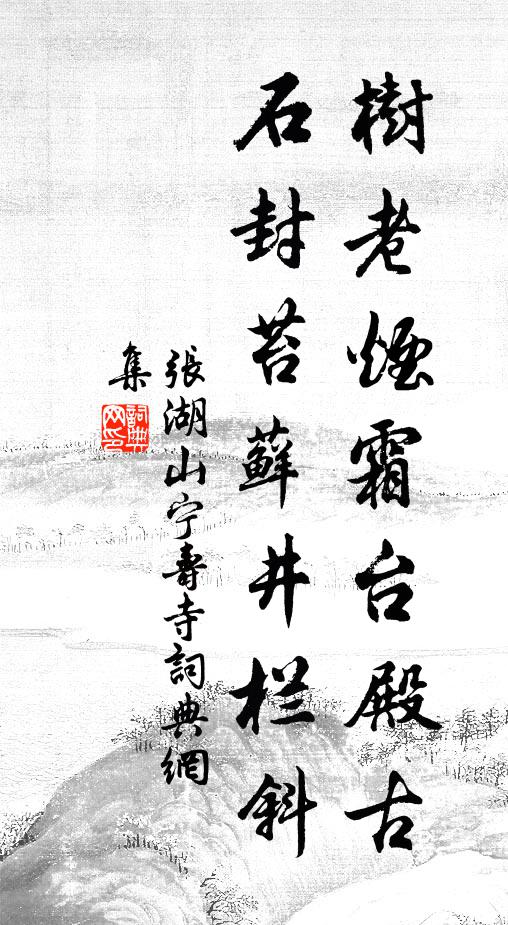 樹老煙霜台殿古
石封苔蘚井栏斜
張湖山宁壽寺詞典網
集
詞典网印